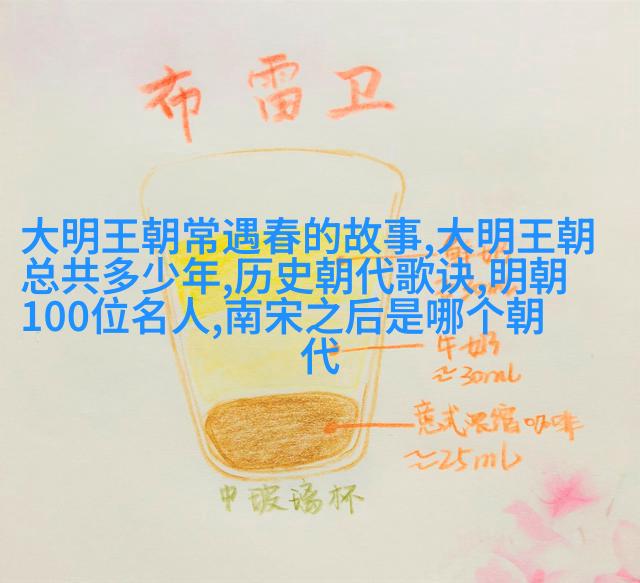 布雷卫
大明王朝常遇春的故事,大明王朝
总共多少年,历史朝代歌诀,明朝
100位名人,南宋之后是哪个朝
代
牛奶
≈30ml
意式浓缩咖啡
≈25ml
中玻璃杯